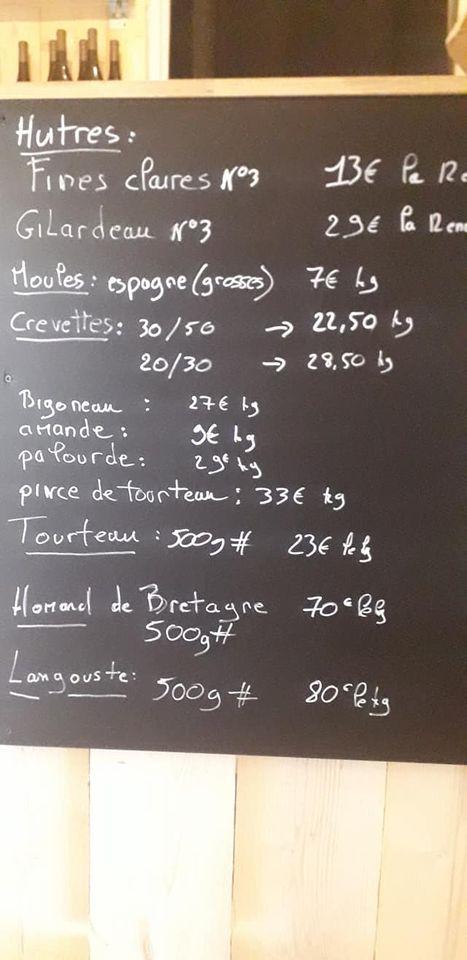 Hutres:
Fines claires N°3 13€ la
Gilardeau N°3 29€ la
Moules: espagne (grosses) 7€ kg
Crevettes: 30/50 → 22,50 kg
20/30 → 28,50 kg
Bigoneau : 27€ kg
amande: 9€ kg
palourde: 29€ kg
pince de tourteau: 33€ kg
Tourteau: 500g# 23€ le kg
Homand de Bretagne 70€ le kg
500g#
Langouste: 500g# 80€ le kg